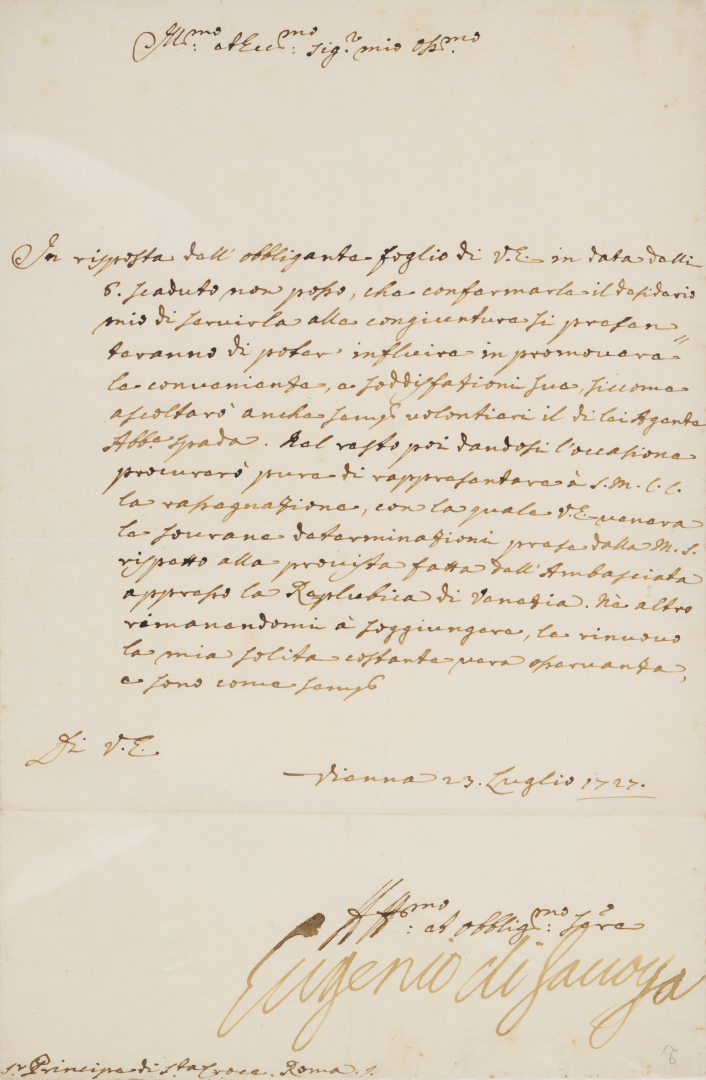 Ill:mo et Ecc:mo Sig:r mio Oss:mo
In risposta dell' obbligante foglio di V.E. in data delli
6. scaduto non posso, che confermarle il desiderio
mio di servirla alle congiunture si presen=
teranno di poter influire in promovere
le convenienze, e soddisfazioni sue, siccome
ascolterò anche semp. volontieri il di lei Agente
Abb.e Spada. Nel resto poi dandosi l'occasione
procurerò pure di rappresentare à S.M.C.C.
la rassegnazione, con la quale V.E. venera
le sourane determinazioni prese dalla M.S.
rispetto alla provista fatta dell'Ambasciata
appresso la Replubica di Venezia. Nè altro
rimanendomi à soggiungere, le rinuovo
la mia solita costante vera osservanza,
e sono come semp.
Di V.E.
Vienna 23. Luglio 1727.
Aff:mo et obblig:mo Ser.e
Eugenio di Savoya
S.r Principe di S.ta Croce. Roma.
8